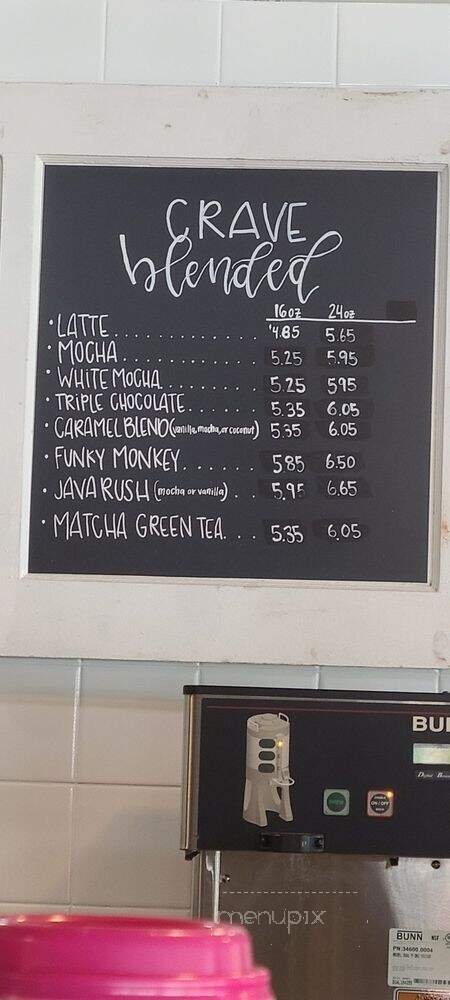 CRAVE
blended
16oz 24oz
• LATTE . . . . . . . . . . . . . 4.85 5.65
• MOCHA . . . . . . . . . . . . 5.25 5.95
• WHITE MOCHA . . . . . . . . 5.25 595
• TRIPLE CHOCOLATE . . . . . . 5.35 6.05
• CARAMEL BLEND (vanilla, mocha, or coconut) 5.35 6.05
• FUNKY MONKEY . . . . . . 585 6.50
• JAVA RUSH (mocha or vanilla) . . 5.95 6.65
• MATCHA GREEN TEA . . . 5.35 6.05
BU
ON/OFF
menupix
BUNN NSF
PN:34600.0004